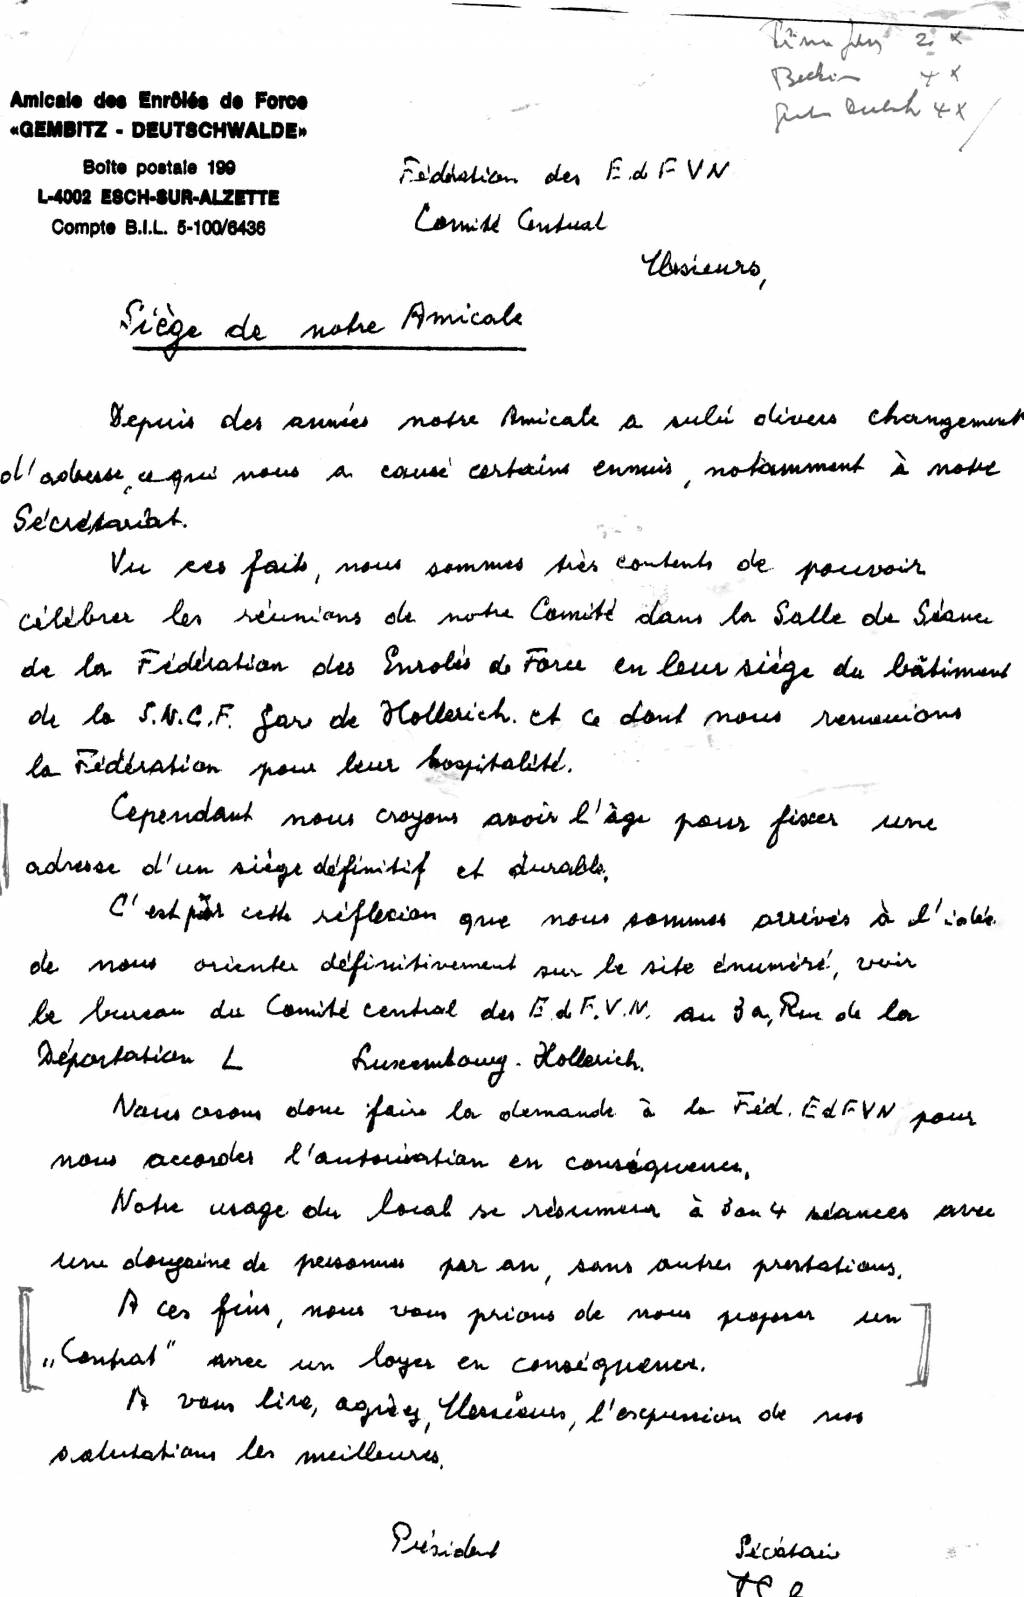 2 x
4 x
4 x
Amicale des Enrôlés de Force
«GEMBITZ - DEUTSCHWALDE»
Boîte postale 199
L-4002 ESCH-SUR-ALZETTE
Compte B.I.L. 5-100/6436
Fédération des E d F V N
Comité Central
Messieurs,
Siège de notre Amicale
Depuis des années notre Amicale a subi divers changement
d'adresse, ce qui nous a causé certains ennuis, notamment à notre
Sécrétariat.
Vu ces faits, nous sommes très contents de pouvoir
célébrer les réunions de notre Comité dans la Salle de Séance
de la Fédération des Enrolés de Force en leur siége du bâtiment
de la S.N.C.F. gare de Hollerich. et ce dont nous remercions
la Fédération pour leur hospitalité.
Cependant nous croyons avoir l'âge pour fixer une
adresse d'un siége définitif et durable.
C'est par cette réflexion que nous sommes arrivés à l'idée
de nous orienter définitivement sur le site énuméré, voir
le bureau du Comité central des E.d.F.V.N. au 3a, Rue de la
Déportation L Luxembourg-Hollerich.
Nous osons donc faire la demande à la Féd. EdFVN pour
nous accorder l'autorisation en conséquence.
Notre usage du local se résumera à 3 ou 4 séances avec
une douzaine de personnes par an, sans autres prestations.
A ces fins, nous vous prions de nous proposer un
„Contrat" avec un loyer en conséquence.
A vous lire, agréez, Messieurs, l'expression de nos
salutations les meilleures.
Président Sécrétaire